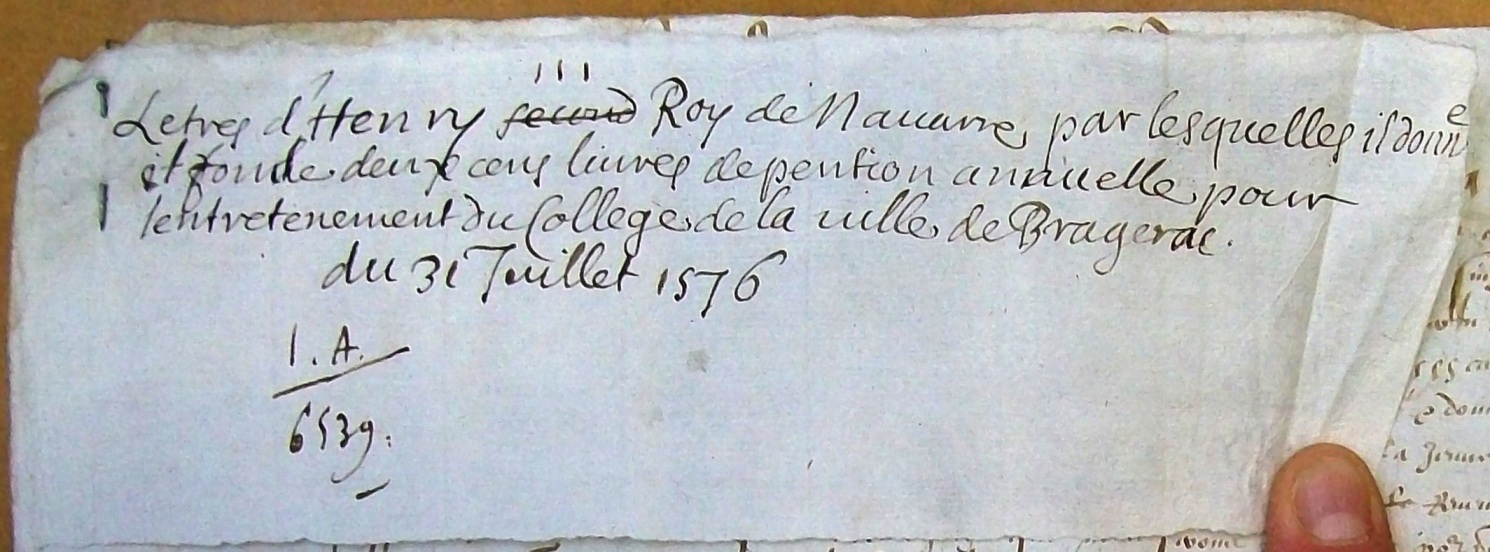 III
Letres d'Henry second Roy de Nauarre, par lesquelles il donne
et fonde deux cens liures de pention annuelle pour
lentretenement du College de la uille de Bragerac.
du 31 Juillet 1576
I. A.
6539.